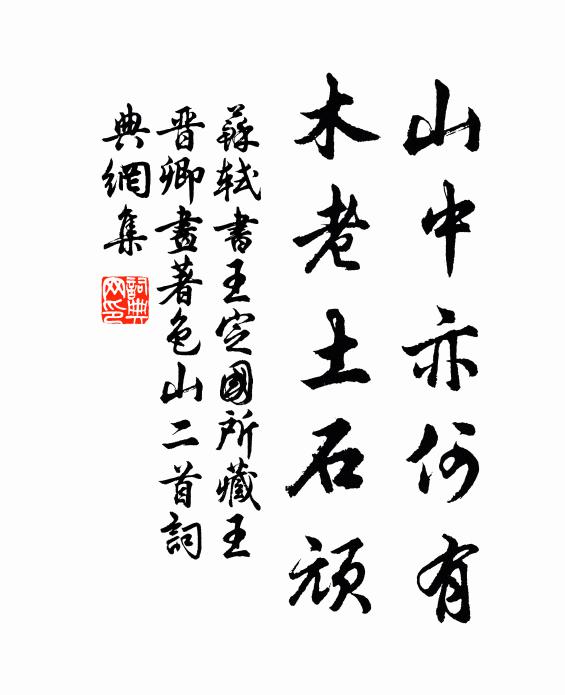 山中亦何有
木老土石頑
蘇軾書王定國所藏王
晋卿畫著色山二首詞
典網集
詞典
网印